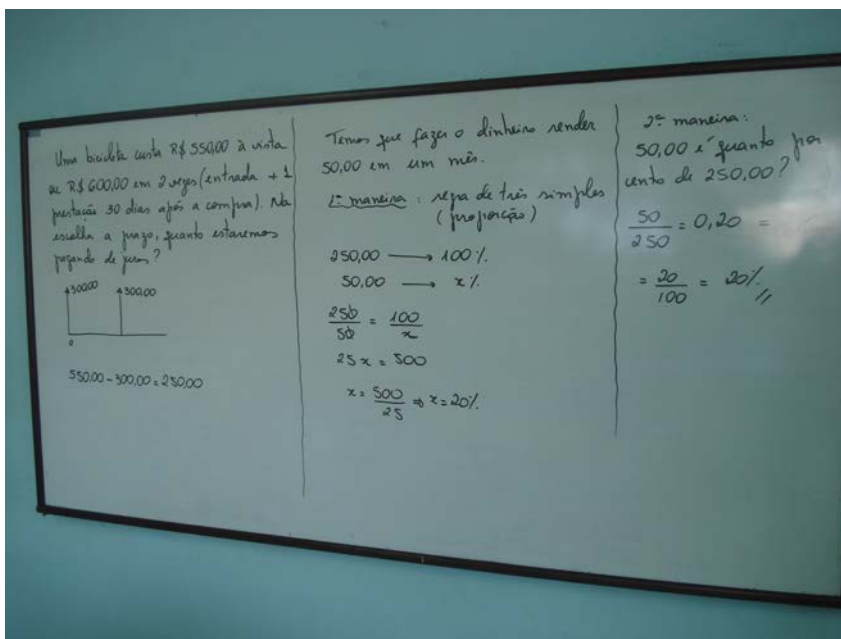 Uma bicicleta custa R$ 550,00 à vista
ou R$ 600,00 em 2 vezes (entrada + 1
prestação 30 dias após a compra). Na
escolha a prazo, quanto estaremos
pagando de juros?
300,00 300,00
0
550,00 - 300,00 = 250,00
Temos que fazer o dinheiro render
50,00 em um mês.
1ª maneira: regra de três simples
(proporção)
250,00 → 100%
50,00 → x%
250/50 = 100/x
25x = 500
x = 500/25 ⇒ x = 20%
2ª maneira:
50,00 é quanto por
cento de 250,00?
50/250 = 0,20 =
= 20/100 = 20% //